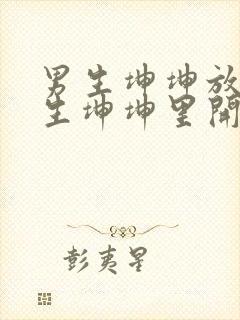 男生坤坤放
生坤坤里開
彭夷星